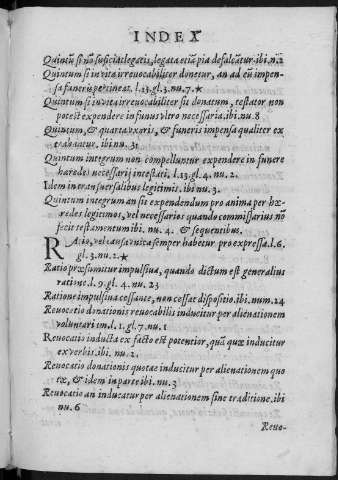 INDEX
Quintũ si nõ sufficiat legatis, legata etiã pia defalcãtur. ibi n.2
Quintum si in vita irrevocabiliter donetur, an ad eũ impen-
sa funeris pertineat. l.13.gl.3.nu.7.★
Quintum si in vita irrevocabiliter sit donatum, testator non
potest expendere in funus vltro necessaria.ibi.nu.8
Quintum, & quarta vxoris, & funeris impensa qualiter ex
trahantur. ibi nu.31
Quintum integrum non compelluntur expendere in funere
haeredes necessarij intestati. l.13.gl.4. nu.2.
Idem in transuersalibus legitimis. ibi nu.3.
Quintum integrum an sit expendendum pro anima per hæ-
redes legitimos, vel necessarios quando commissarius nõ
fecit testamentum ibi. nu.4. & sequentibus.
RAtio, vel causa vnita semper habetur pro expressa.l.6.
gl.3.nu.1.★
Ratio præsumitur impulsiua, quando dictum est generalius
ratione.l.9.gl.4.nu.23
Ratione impulsiua cessante, non cessat dispositio.ibi.num.24
Reuocatio donationis reuocabilis inducitur per alienationem
voluntariam.l.1.gl.7.nu.1
Reuocatio inducta ex facto est potentior, quã quæ inducitur
ex verbis.ibi.nu.2.
Reuocatio donationis quotae inducitur per alienationem quo
tæ, & idem in parte ibi.nu.3
Reuocatio an inducatur per alienationem sine traditione.ibi
nu.6
Reuo-